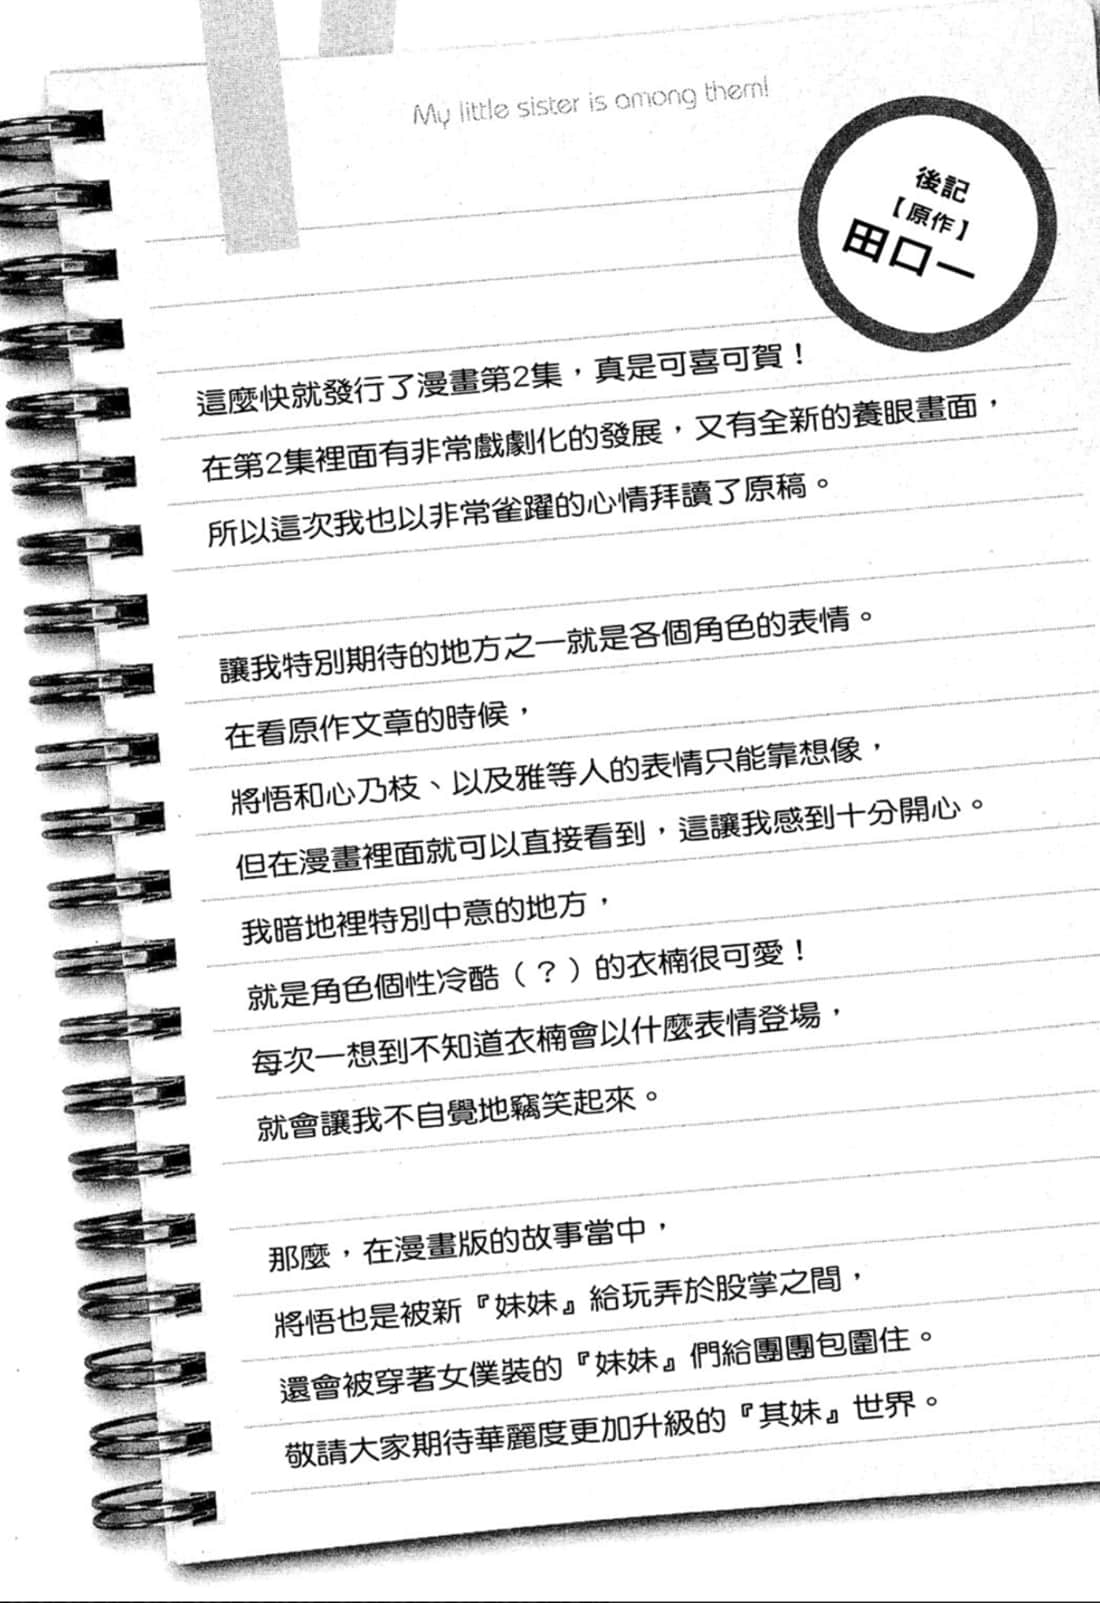 My little sister is among them!
後記
【原作】
田口一
這麼快就發行了漫畫第2集，真是可喜可賀！
在第2集裡面有非常戲劇化的發展，又有全新的養眼畫面，
所以這次我也以非常雀躍的心情拜讀了原稿。
讓我特別期待的地方之一就是各個角色的表情。
在看原作文章的時候，
將悟和心乃枝、以及雅等人的表情只能靠想像，
但在漫畫裡面就可以直接看到，這讓我感到十分開心。
我暗地裡特別中意的地方，
就是角色個性冷酷（？）的衣楠很可愛！
每次一想到不知道衣楠會以什麼表情登場，
就會讓我不自覺地竊笑起來。
那麼，在漫畫版的故事當中，
將悟也是被新『妹妹』給玩弄於股掌之間，
還會被穿著女僕裝的『妹妹』們給團團包圍住。
敬請大家期待華麗度更加升級的『其妹』世界。